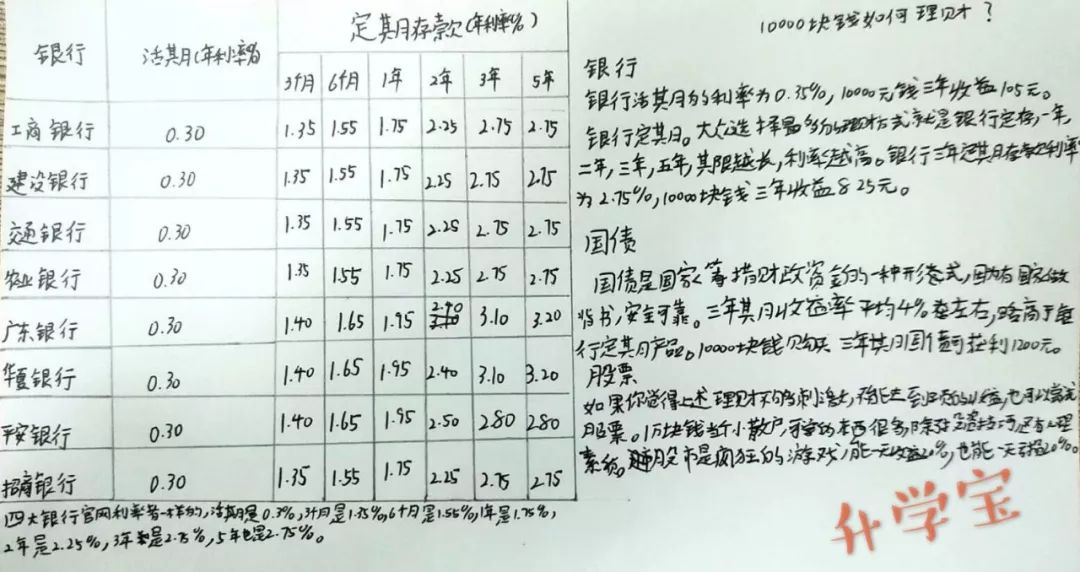 银行 活期(年利率%) 定期存款(年利率%)
3个月 6个月 1年 2年 3年 5年
工商银行 0.30 1.35 1.55 1.75 2.25 2.75 2.75
建设银行 0.30 1.35 1.55 1.75 2.25 2.75 2.75
交通银行 0.30 1.35 1.55 1.75 2.25 2.75 2.75
农业银行 0.30 1.35 1.55 1.75 2.25 2.75 2.75
广东银行 0.30 1.40 1.65 1.95 2.40 3.10 3.20
华夏银行 0.30 1.40 1.65 1.95 2.40 3.10 3.20
平安银行 0.30 1.40 1.65 1.95 2.50 2.80 2.80
招商银行 0.30 1.35 1.55 1.75 2.25 2.75 2.75
四大银行官网利率是一样的,活期是0.3%,3个月是1.35%,6个月是1.55%,1年是1.75%,
2年是2.25%,3年是2.75%,5年也是2.75%。
10000块钱如何理财?
银行
银行活期的利率为0.35%,10000元钱三年收益105元。
银行定期。大众选择最多的理财方式就是银行定存,一年,
二年,三年,五年,期限越长,利率越高。银行三年定期存款利率
为2.75%,10000块钱三年收益825元。
国债
国债是国家筹措财政资金的一种形式,因为有国家做
背书,安全可靠。三年期收益率平均4%左右,略高于银
行定期产品。10000块钱购买三年期国债可获利1200元。
股票
如果你觉得上述理财不够刺激,不能达到的收益,也可以尝试
股票。1万块钱当个小散户,可学的东西很多,除技巧还有心理
素质。股市是疯狂的游戏,能一天收益20%,也能一天亏损20%。
升学宝